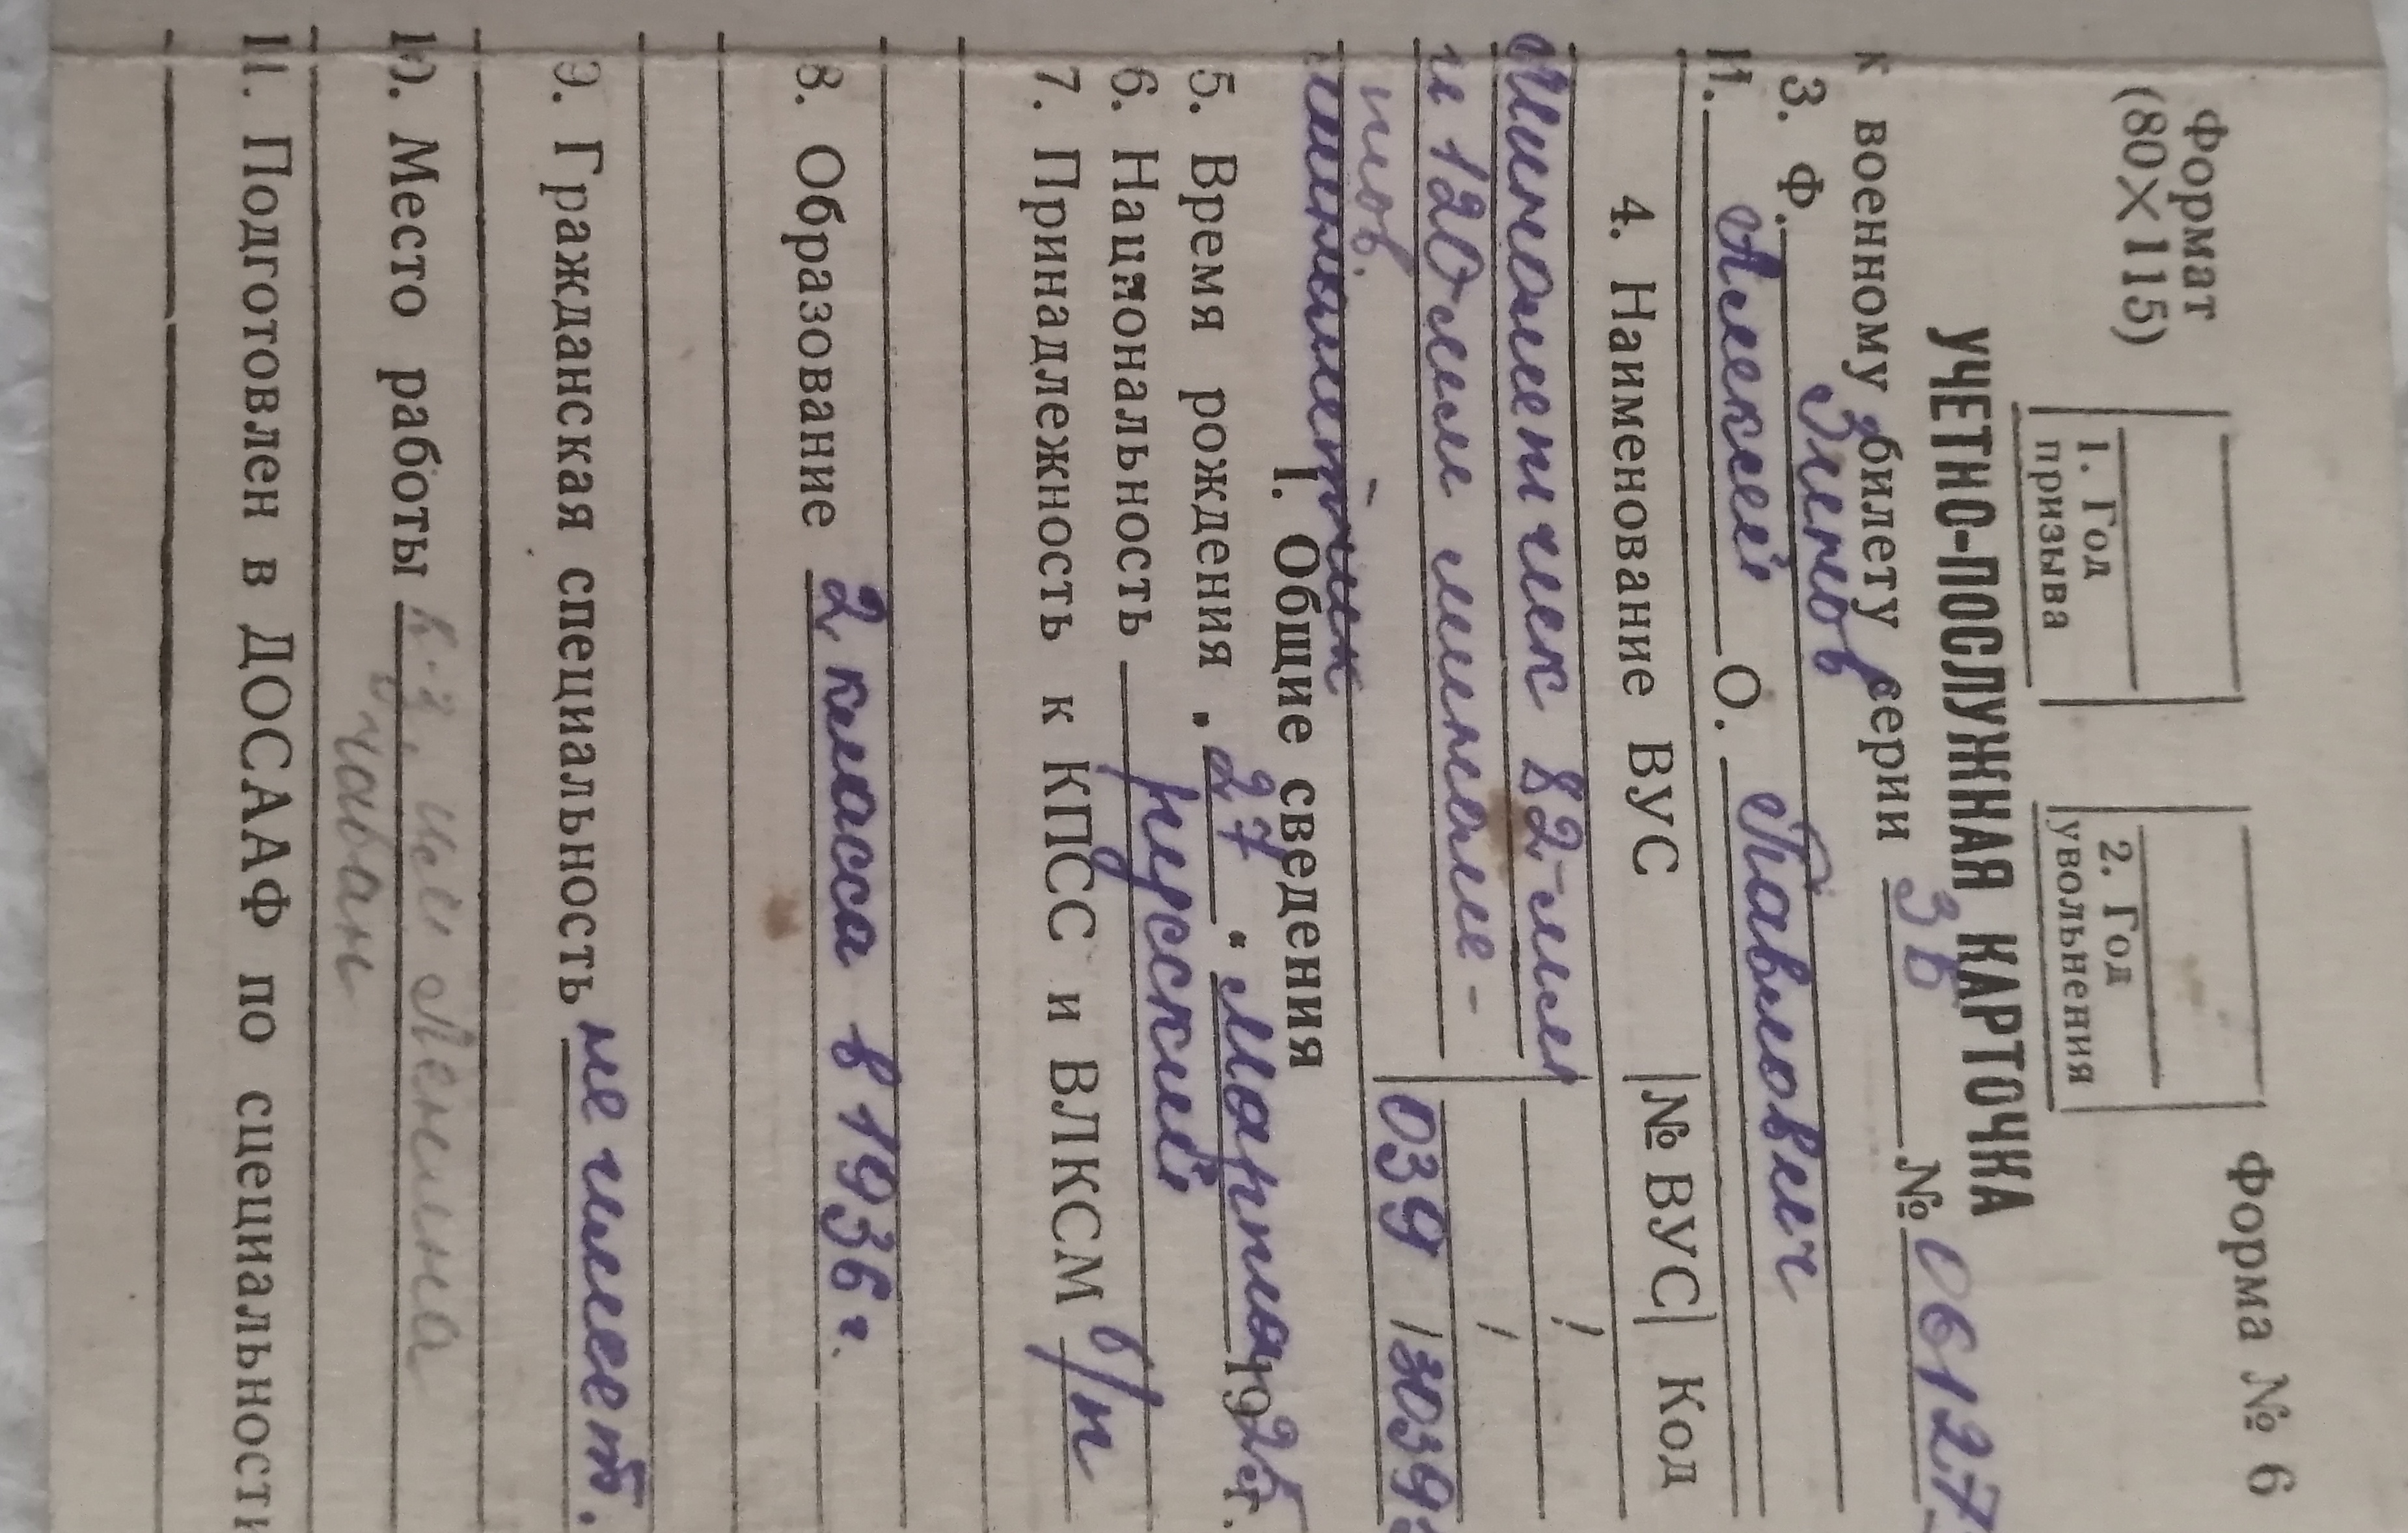 Формат
(80×115)
Форма № 6
1. Год призыва
2. Год увольнения
УЧЕТНО-ПОСЛУЖНАЯ КАРТОЧКА
к военному билету серии ЗВ № 06127
3. Ф. Зимов
И. Алексей О. Павлович
4. Наименование ВУС № ВУС Код
Минометчик 82-мм
и 120 мм
039 3039
I. Общие сведения
5. Время рождения „27“ Марта 1925 г.
6. Национальность русский
7. Принадлежность к КПСС и ВЛКСМ б/п
8. Образование 2 класса в 1936 г.
9. Гражданская специальность не имеет.
10. Место работы к-з. им Ленина
чабан
11. Подготовлен в ДОСААФ по специальности